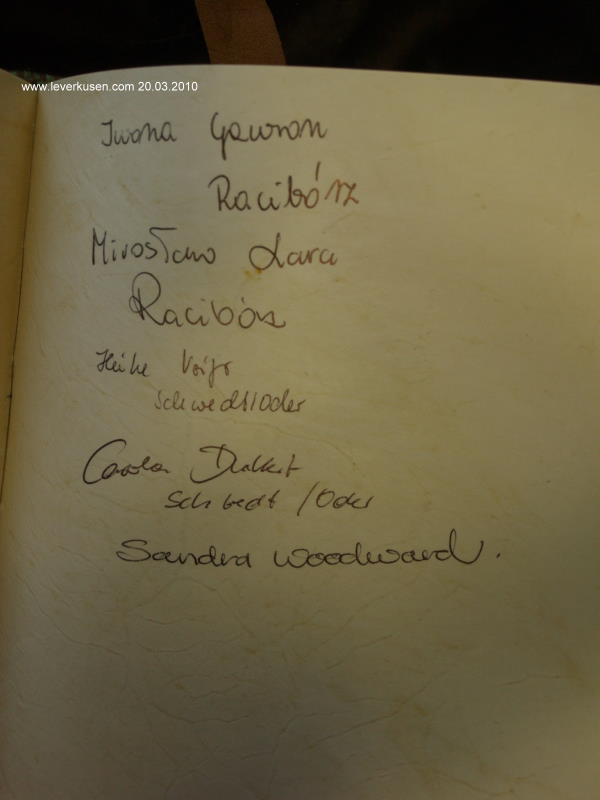 www.leverkusen.com 20.03.2010
Iwona Gawron
Racibórz
Mirosław Lara
Racibórz
Heike Voigt
Schwedt/Oder
Carola
Schwedt /Oder
Sandra Woodward.